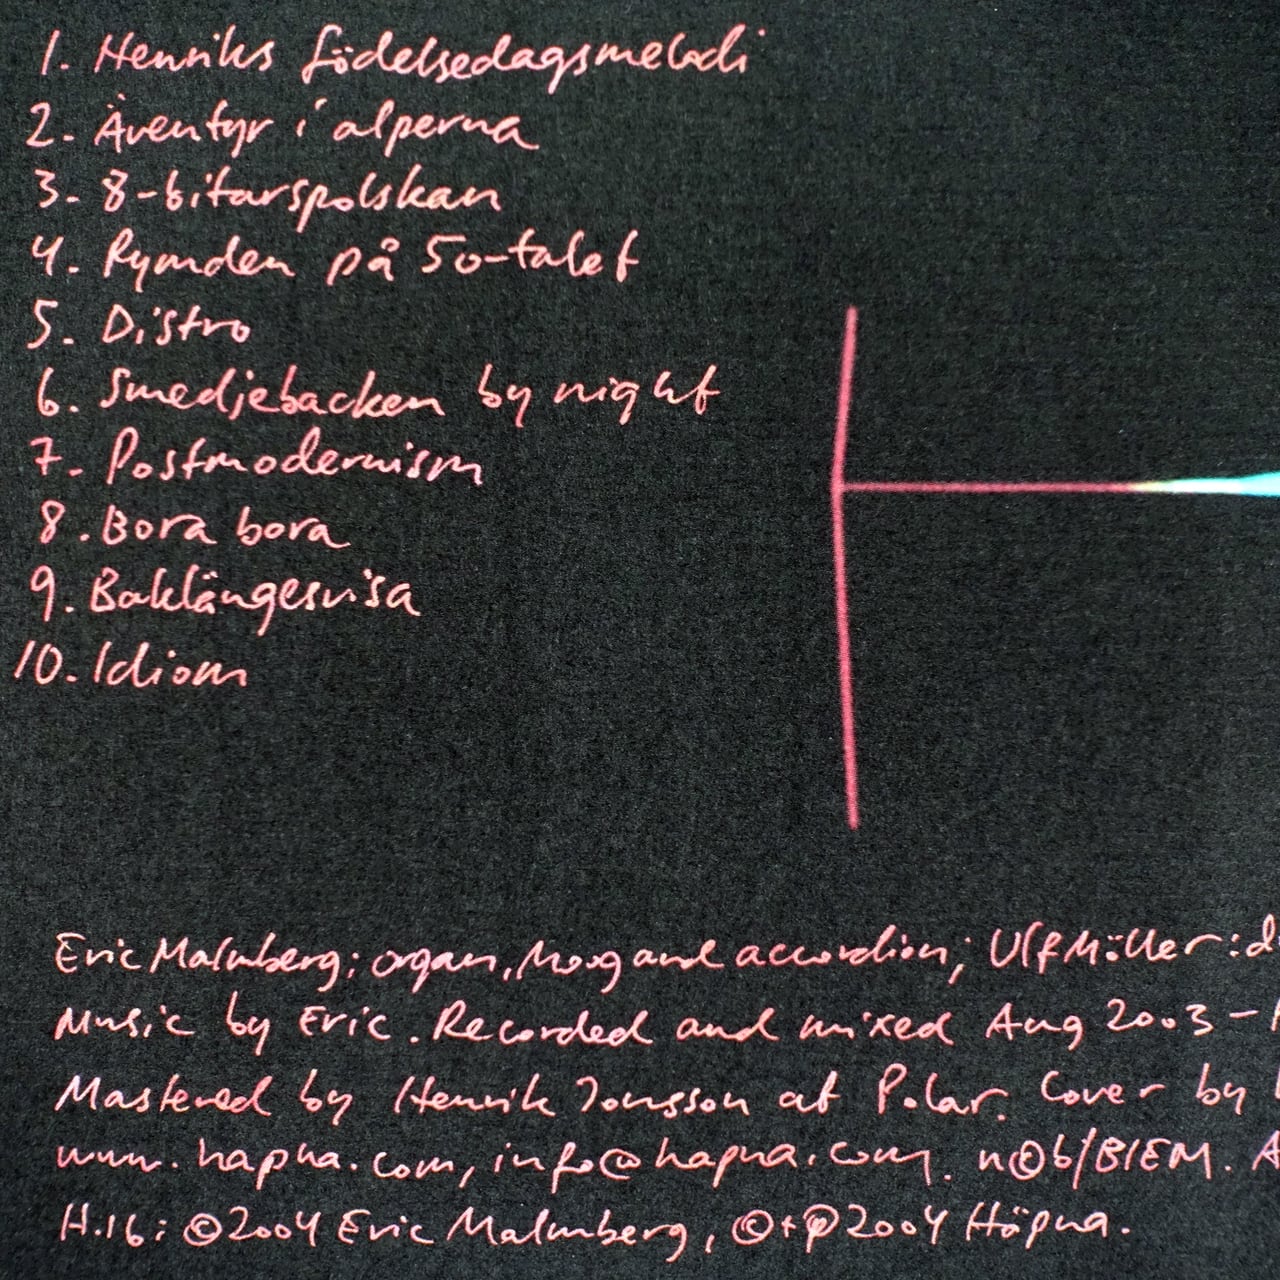 1. Henriks födelsedagsmelodi
2. Äventyr i alperna
3. 8-bitarspolskan
4. Rymden på 50-talet
5. Distro
6. Smedjebacken by night
7. Postmodernism
8. Bora bora
9. Baklängesvisa
10. Idiom
Eric Malmberg: organ, Moog and accordion; Ulf Möller: d
Music by Eric. Recorded and mixed Aug 2003 –
Mastered by Henrik Jonsson at Polar. Cover by
www.hapna.com, info@hapna.com. n©b/BIEM. A
H.16: ©2004 Eric Malmberg, ©+℗2004 Häpna.